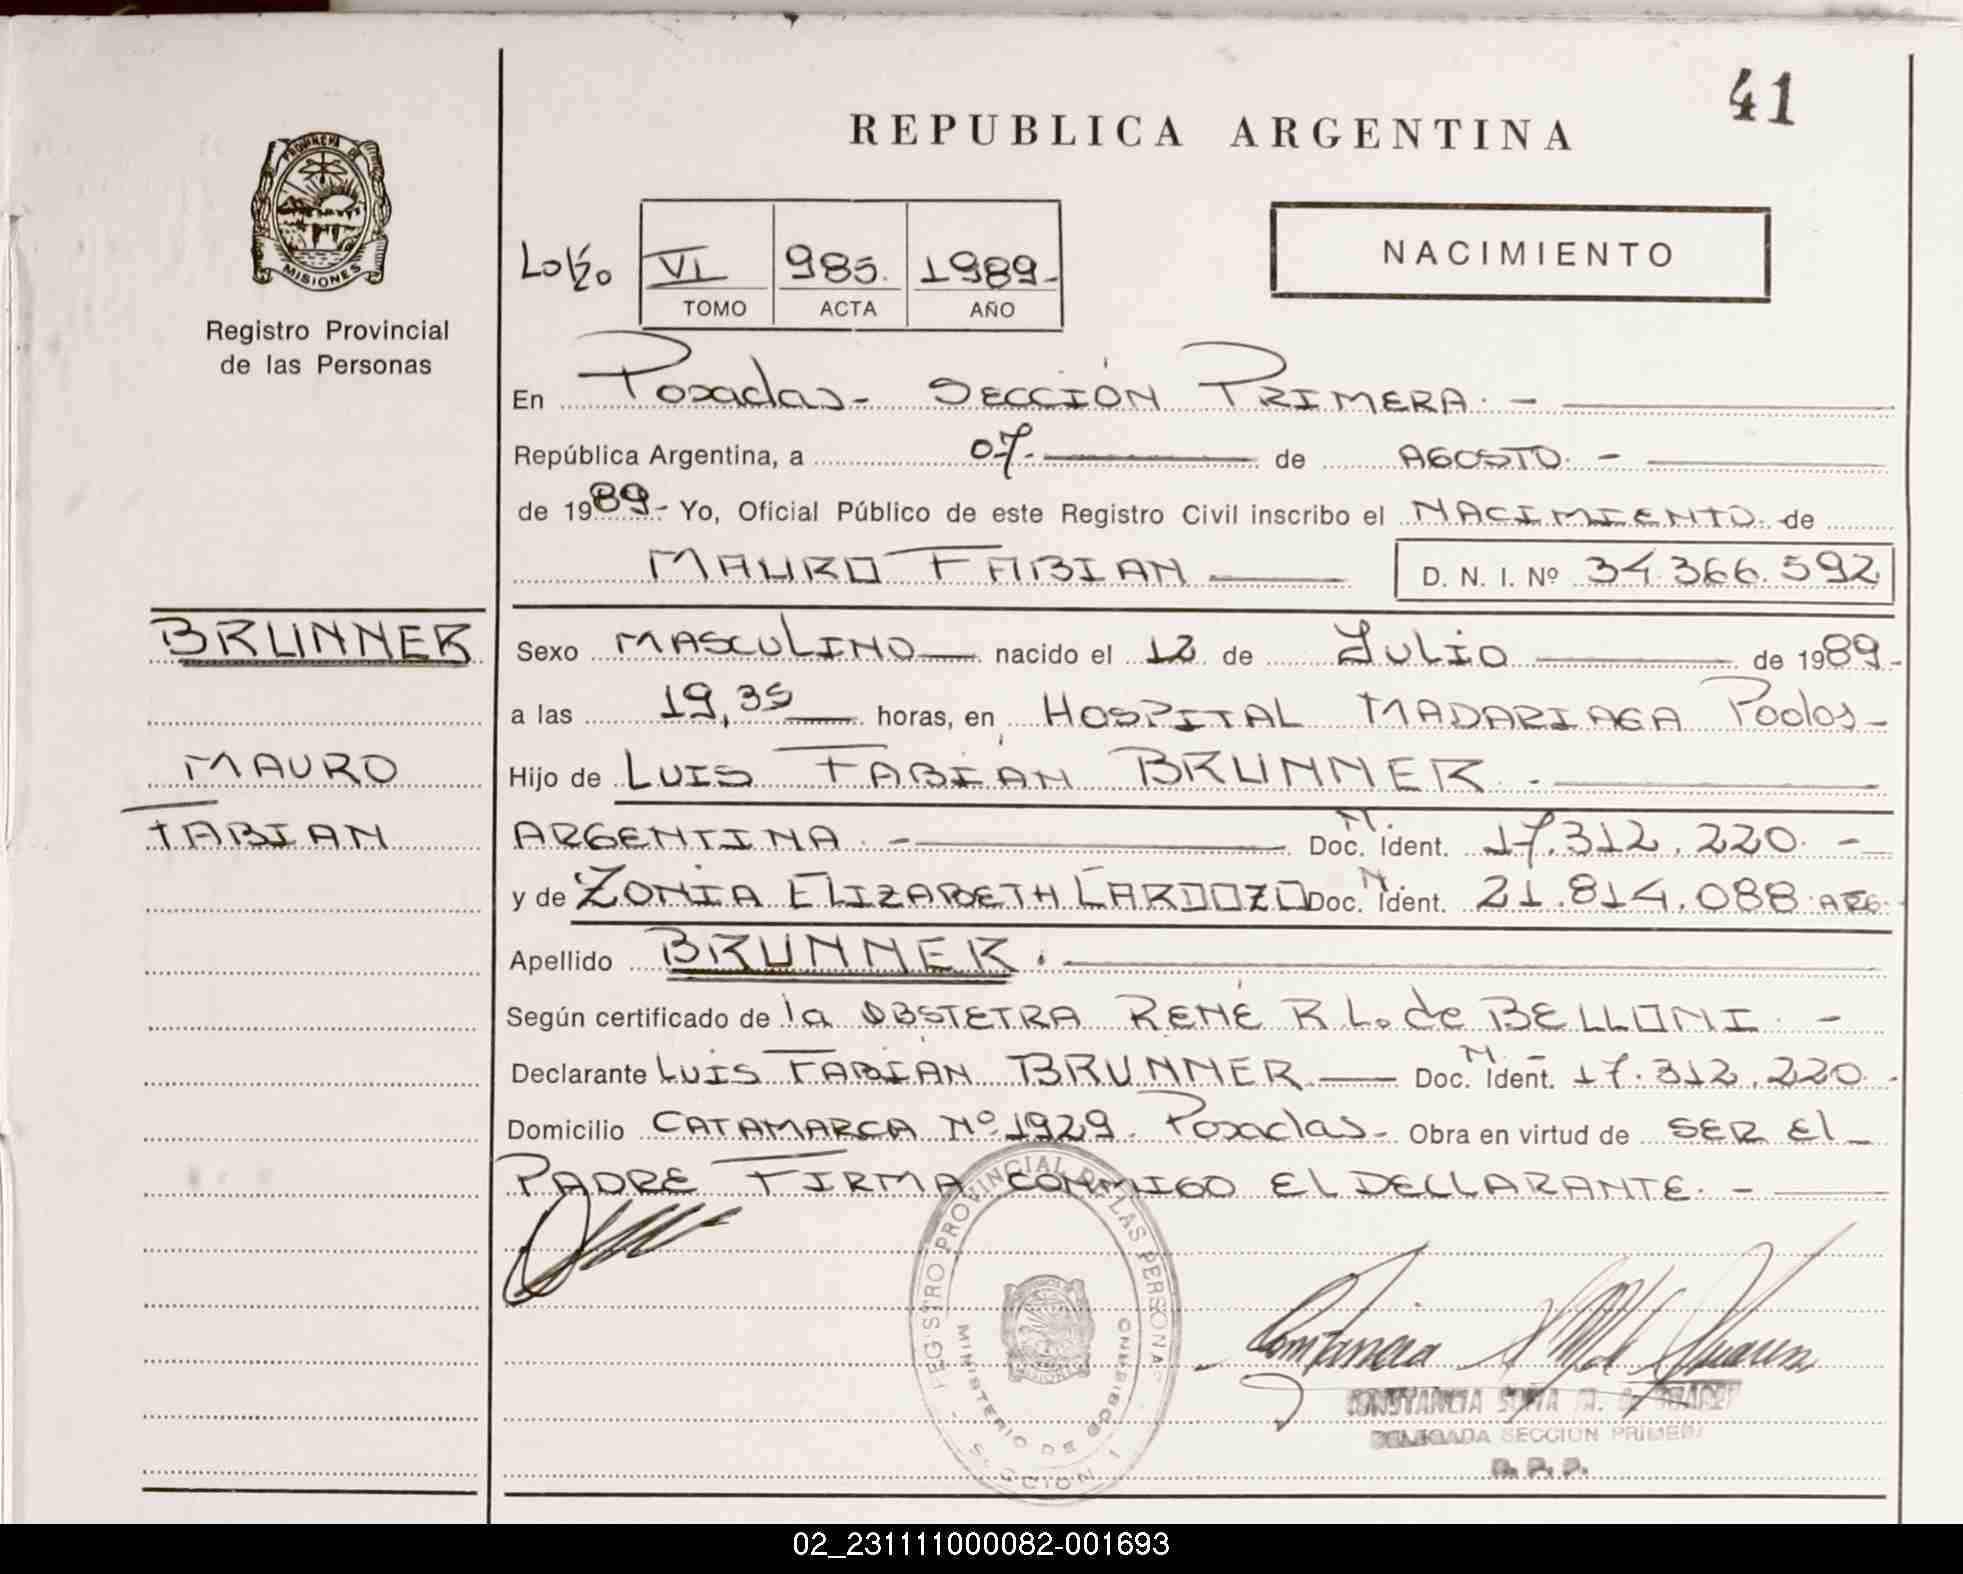 41
REPUBLICA ARGENTINA
PROVINCIA DE
MISIONES
Registro Provincial
de las Personas
NACIMIENTO
VI 985. 1989-
TOMO ACTA AÑO
En Posadas- SECCIÓN PRIMERA. -
República Argentina, a 07. de AGOSTO. -
de 1989- Yo, Oficial Público de este Registro Civil inscribo el NACIMIENTO. de
MAURO FABIAN D. N. I. Nº 34.366.592
BRUNNER
MAURO
FABIAN
Sexo MASCULINO nacido el 12 de Julio de 1989-
a las 19,35 horas, en HOSPITAL MADARIAGA Podas-
Hijo de LUIS FABIÁN BRUNNER. -
ARGENTINA. - Doc. N. Ident. 17.312.220. -
y de ZONIA ELIZABETH CARDOZO Doc. N. Ident. 21.814.088. ARG.
Apellido BRUNNER.
Según certificado de la OBSTETRA RENÉ R L. de BELLONI. -
Declarante LUIS FABIÁN BRUNNER. Doc. N. Ident. 17.312.220. -
Domicilio CATAMARCA Nº 1929. Posadas- Obra en virtud de SER El
PADRE FIRMA CONMIGO El DECLARANTE. -
REGISTRO PROVINCIAL DE LAS PERSONAS
MINISTERIO DE GOBIERNO
SECCION I
CONSTANCIA
DELEGADA SECCION PRIMERA
R. P. P.
02_231111000082-001693